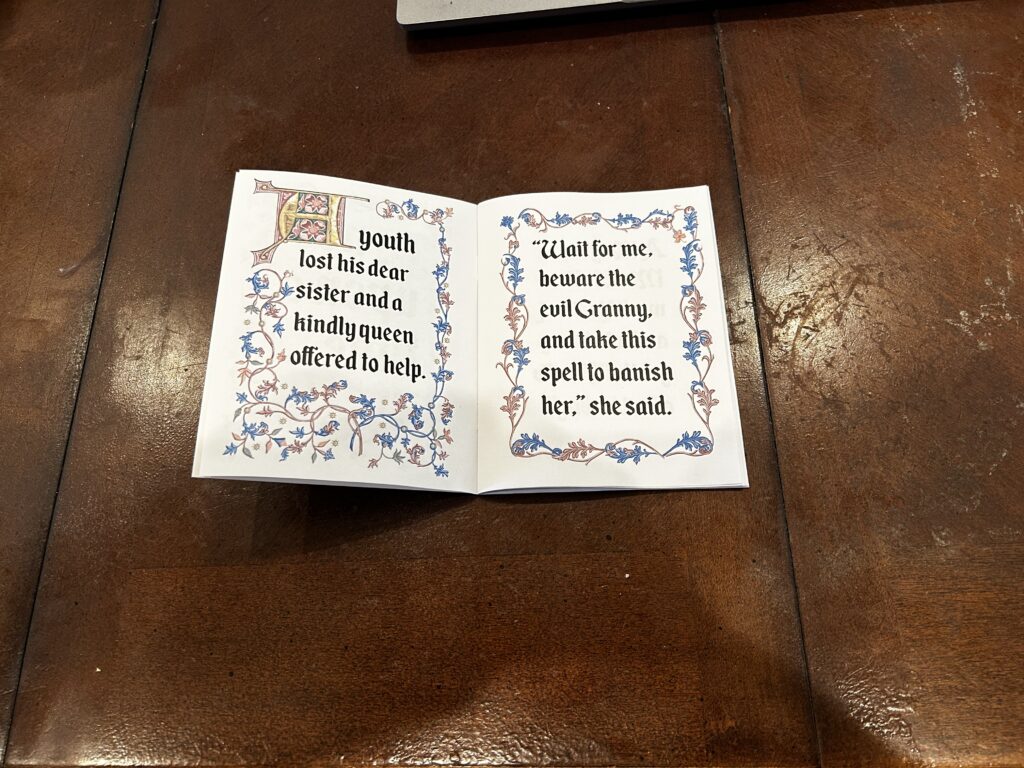 A youth
lost his dear
sister and a
kindly queen
offered to help.
“Wait for me,
beware the
evil Granny,
and take this
spell to banish
her,” she said.